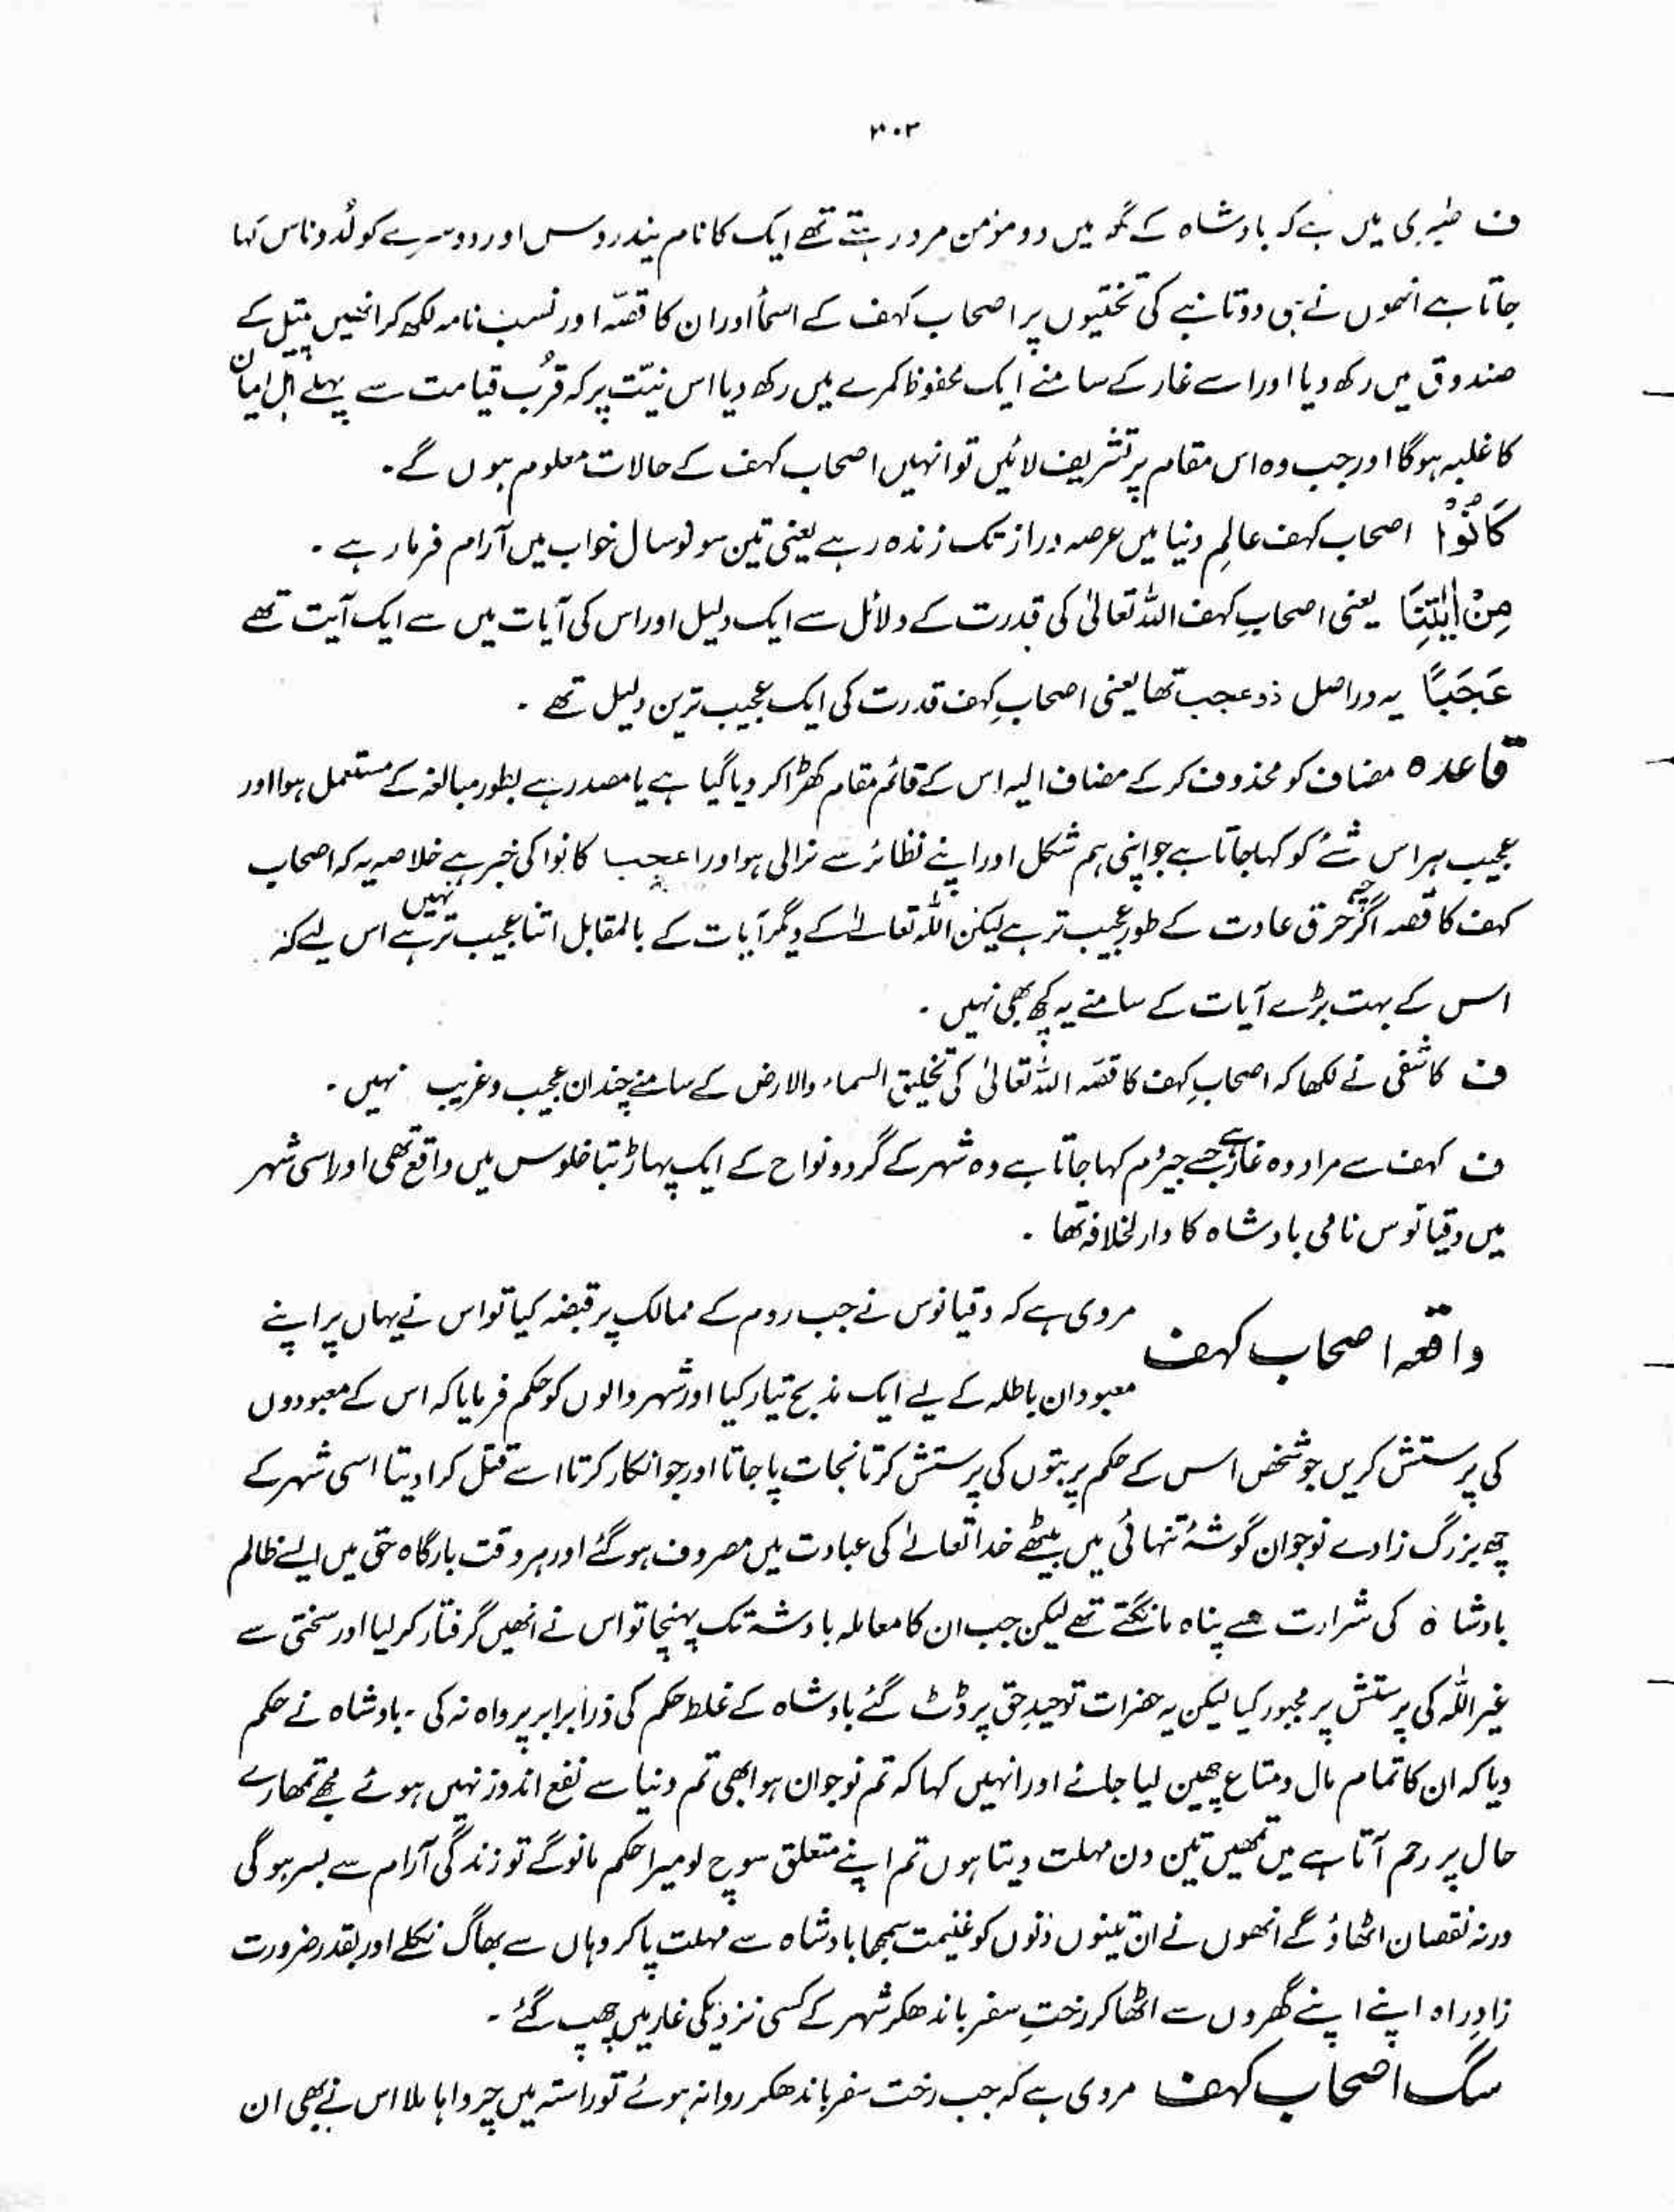 ۳۰۳
ف طبری میں ہے کہ بادشاہ کے گھر میں دو مؤمن مرد رہتے تھے ایک کا نام یندروس اور دوسرے کو لُدوناس کہا
جاتا ہے انھوں نے ہی دو تانبے کی تختیوں پر اصحاب کہف کے اسمأ اور ان کا قصّہ اور نسب نامہ لکھ کر انھیں پیتل کے
صندوق میں رکھ دیا اور اسے غار کے سامنے ایک محفوظ کمرے میں رکھ دیا اس نیّت پر کہ قُرب قیامت سے پہلے اہل ایمان
کا غلبہ ہوگا اور جب وہ اس مقام پر تشریف لائیں تو انہیں اصحاب کہف کے حالات معلوم ہوں گے۔
كَانُوْا اصحاب کہف عالمِ دنیا میں عرصہ دراز تک زندہ رہے یعنی تین سو نو سال خواب میں آرام فرما رہے ۔
مِنْ اٰیٰتِنَا یعنی اصحابِ کہف اللہ تعالیٰ کی قدرت کے دلائل سے ایک دلیل اور اس کی آیات میں سے ایک آیت تھے
عَجَبًا یہ دراصل ذو عجب تھا یعنی اصحابِ کہف قدرت کی ایک عجیب ترین دلیل تھے ۔
قاعدہ مضاف کو محذوف کر کے مضاف الیہ اس کے قائم مقام کھڑا کر دیا گیا ہے یا مصدر ہے بطور مبالغہ کے مستعمل ہوا اور
عجیب ہر اس شئے کو کہا جاتا ہے جو اپنی ہم شکل اور اپنے نظائر سے نرالی ہو اور اعجب کانوا کی خبر ہے خلاصہ یہ کہ اصحاب
کہف کا قصہ اگرچہ خرق عادت کے طور عجیب تر ہے لیکن اللہ تعالےٰ کے دیگر آیات کے بالمقابل اتنا عجیب تر نہیں ہے اس لیے کہ
اس کے بہت بڑے آیات کے سامنے یہ کچھ بھی نہیں ۔
ف کاشفی نے لکھا کہ اصحابِ کہف کا قصّہ اللہ تعالیٰ کی تخلیق السماء والارض کے سامنے چنداں عجیب و غریب نہیں ۔
ف کہف سے مراد وہ غار ہے جسے جیرُم کہا جاتا ہے وہ شہر کے گرد و نواح کے ایک پہاڑ بتاخلوس میں واقع تھی اور اسی شہر
میں دقیانوس نامی بادشاہ کا دارلخلافہ تھا ۔
واقعہ اصحاب کہف مروی ہے کہ دقیانوس نے جب روم کے ممالک پر قبضہ کیا تو اس نے یہاں پر اپنے
معبودان باطلہ کے لیے ایک مذبح تیار کیا اور شہر والوں کو حکم فرمایا کہ اس کے معبودوں
کی پرستش کریں جو شخص اس کے حکم پر بتوں کی پرستش کرتا نجات پا جاتا اور جو انکار کرتا اسے قتل کرا دیتا اسی شہر کے
چھ بزرگ زادے نوجوان گوشۂ تنہائی میں بیٹھے خدا تعالےٰ کی عبادت میں مصروف ہو گئے اور ہر وقت بارگاہ حق میں ایسے ظالم
بادشاہ کی شرارت سے پناہ مانگتے تھے لیکن جب ان کا معاملہ بادشہ تک پہنچا تو اس نے انھیں گرفتار کر لیا اور سختی سے
غیر اللہ کی پرستش پر مجبور کیا لیکن یہ حضرات توحیدِ حق پر ڈٹ گئے بادشاہ کے غلط حکم کی ذرا برابر پرواہ نہ کی ۔ بادشاہ نے حکم
دیا کہ ان کا تمام مال و متاع چھین لیا جائے اور انہیں کہا کہ تم نوجوان ہو ابھی تم دنیا سے نفع اندوز نہیں ہوئے مجھے تمھارے
حال پر رحم آتا ہے میں تمھیں تین دن مہلت دیتا ہوں تم اپنے متعلق سوچ لو میرا حکم مانو گے تو زندگی آرام سے بسر ہو گی
ورنہ نقصان اٹھاؤ گے انھوں نے ان تینوں دنوں کو غنیمت سمجھا بادشاہ سے مہلت پا کر وہاں سے بھاگ نکلے اور بقدر ضرورت
زادِراہ اپنے اپنے گھروں سے اٹھا کر رختِ سفر باندھکر شہر کے کسی نزدیکی غار میں چھپ گئے ۔
سگ اصحاب کہف مروی ہے کہ جب رخت سفر باندھکر روانہ ہوئے تو راستہ میں چرواہا ملا اس نے بھی ان